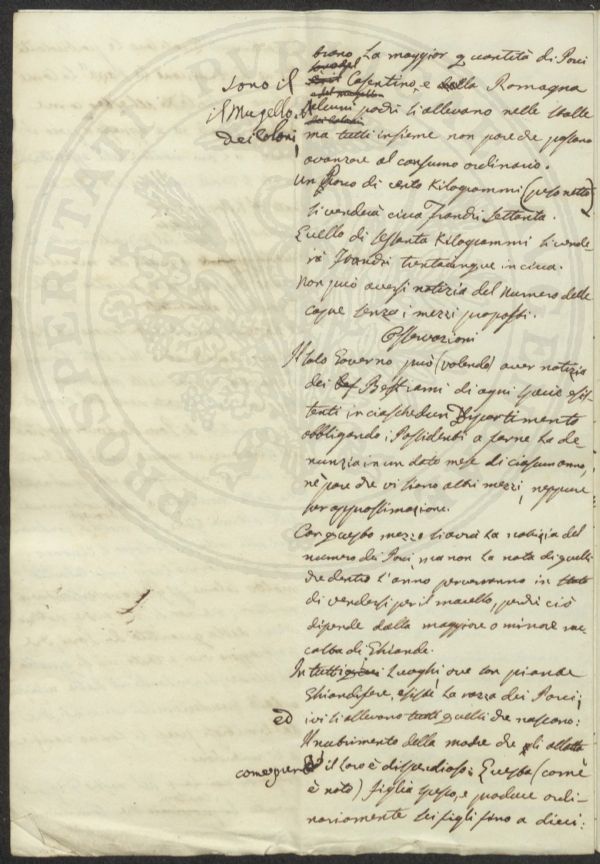 brano la maggior quantità di Porci
Casentino, e della Romagna
sono il
il Mugello.
dei Coloni
Alcuni pochi si allevano nelle stalle
ma tutti insieme non pare che possano
avanzare al consumo ordinario.
Un Porco di cento Kilogrammi (peso netto)
si venderà circa Franchi settanta.
Quello di sessanta Kilogrammi si vende-
rà Franchi trentacinque in circa.
Non può aversi notizia del numero delle
capre senza i mezzi proposti.
Osservazioni
Il solo Governo può (volendo) aver notizia
dei Bestiami di ogni specie esi-
stenti in ciaschedun Dipartimento
obbligando i Possidenti a farne la de-
nunzia in un dato mese di ciascun anno,
nè pare che vi siano altri mezzi, neppure
per approssimazione.
Con questo mezzo si avrà la notizia del
numero dei Porci, ma non la nota di quelli
che dentro l'anno perverranno in stato
di vendersi per il macello, perchè ciò
dipende dalla maggiore o minore rac-
colta di Ghiande.
In tutti i Luoghi, ove son piante
Ghiandifere, esiste la razza dei Porci,
ed
ivi si allevano tutti quelli che nascono:
Il nutrimento della madre che gli allatta
come pure
il loro è dispendioso: Questa (com'è
è noto) figlia spesso, e produce ordi-
nariamente sei figli fino a dieci:
PROSPERITATI PVBL